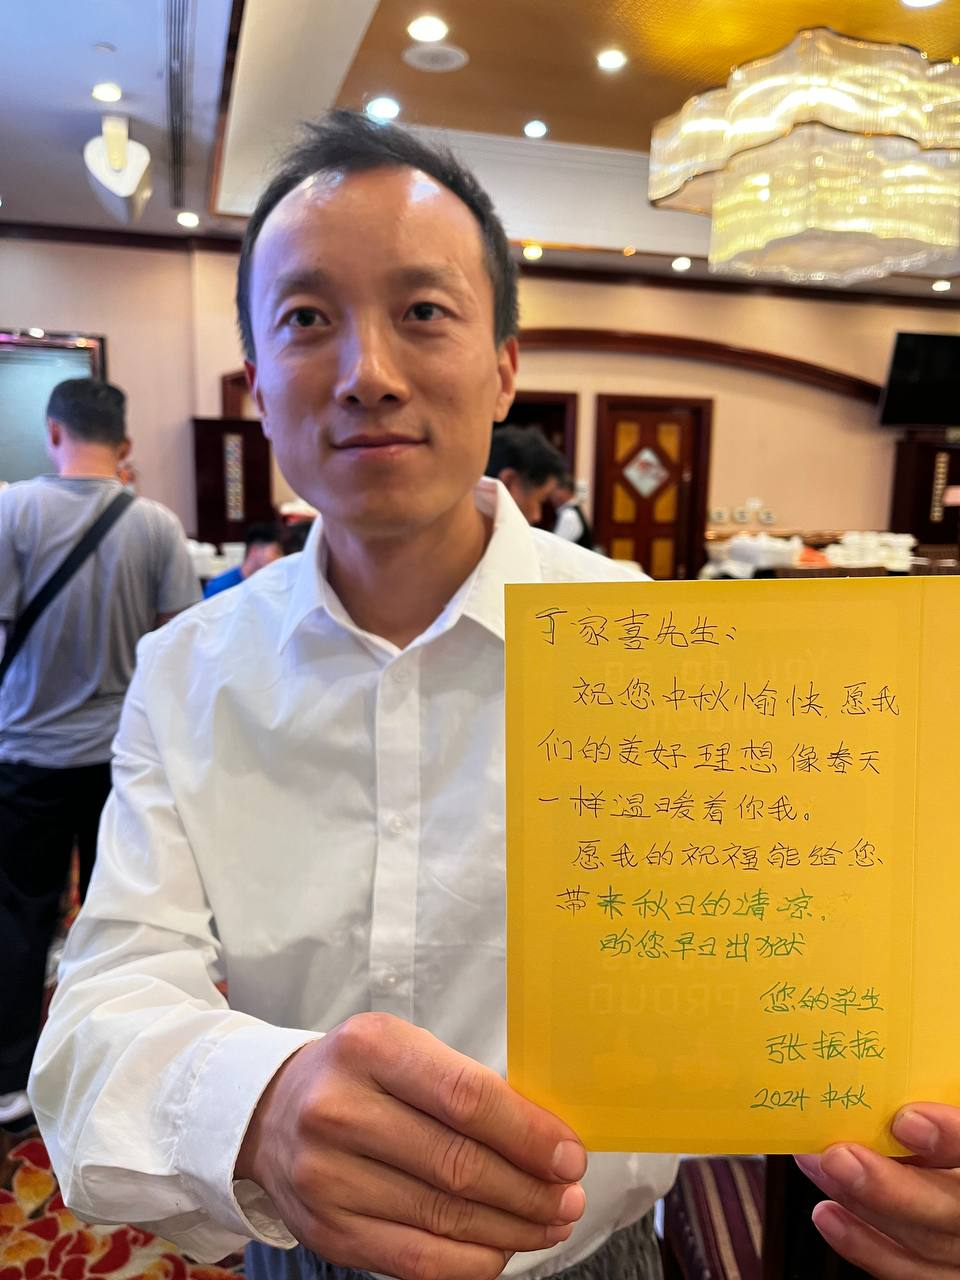 丁家喜先生：
祝您中秋愉快，愿我
们的美好理想像春天
一样温暖着你我。
愿我的祝福能给您
带来秋日的清凉。
盼您早日出狱
您的学生
张振振
2024 中秋
PROUD